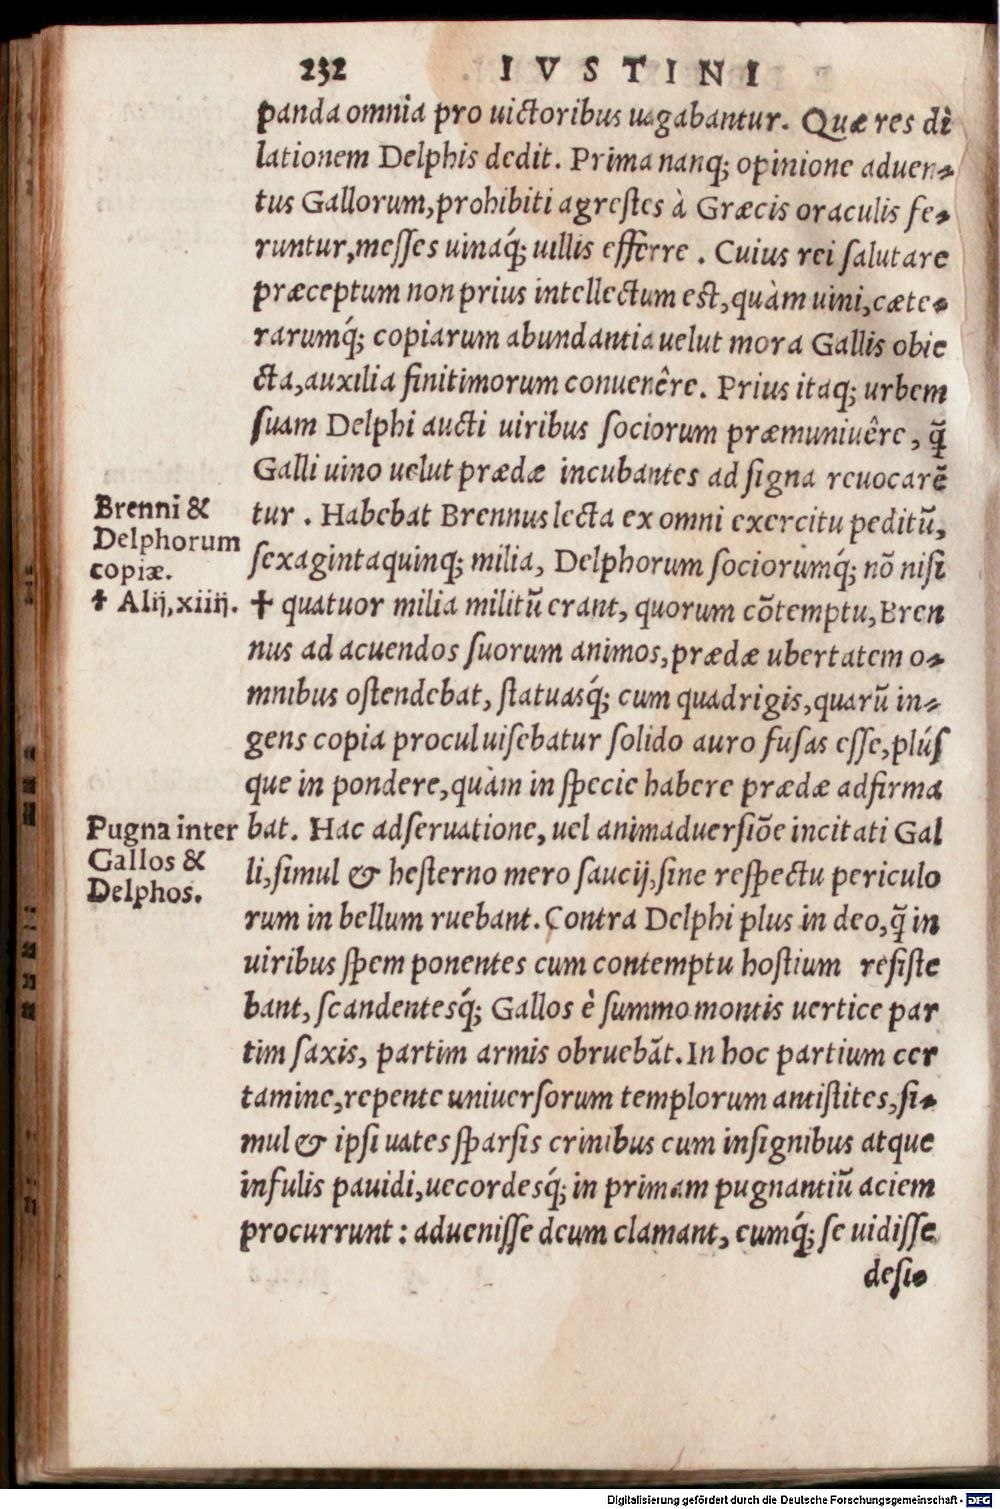 232 IVSTINI
panda omnia pro uictoribus uagabantur. Quæ res dì
lationem Delphis dedit. Prima nanq; opinione aduen-
tus Gallorum, prohibiti agreſtes à Græcis oraculis fe-
runtur, meſſes uinaq́; uillis efferre. Cuius rei ſalutare
præceptum non prius intellectum eſt, quàm uini, cæte-
rarumq́; copiarum abundantia uelut mora Gallis obie
cta, auxilia finitimorum conuenêre. Prius itaq; urbem
ſuam Delphi aucti uiribus ſociorum præmuniuêre, q̃
Galli uino uelut prædæ incubantes ad ſigna reuocarẽ
Brenni &
Delphorum
copiæ.
† Alij, xiiij.
tur. Habebat Brennus lecta ex omni exercitu peditũ,
ſexagintaquinq; milia, Delphorum ſociorumq́; nõ niſi
† quatuor milia militũ erant, quorum cõtemptu, Bren
nus ad acuendos ſuorum animos, prædæ ubertatem o-
mnibus oſtendebat, ſtatuasq́; cum quadrigis, quarũ in-
gens copia procul uiſebatur ſolido auro fuſas eſſe, plúſ
que in pondere, quàm in ſpecie habere prædæ adfirma
Pugna inter
Gallos &
Delphos.
bat. Hac adſeruatione, uel animaduerſiõe incitati Gal
li, ſimul & heſterno mero ſaucij, ſine reſpectu periculo
rum in bellum ruebant. Contra Delphi plus in deo, q̃ in
uiribus ſpem ponentes cum contemptu hoſtium reſiſte
bant, ſcandentesq́; Gallos è ſummo montis uertice par
tim ſaxis, partim armis obruebãt. In hoc partium cer
tamine, repente uniuerſorum templorum antiſtites, ſi-
mul & ipſi uates ſparſis crinibus cum inſignibus atque
infulis pauidi, uecordesq́; in primam pugnantiũ aciem
procurrunt: adueniſſe deum clamant, eumq́; ſe uidiſſe
deſi-
Digitalisierung gefördert durch die Deutsche Forschungsgemeinschaft - DFG